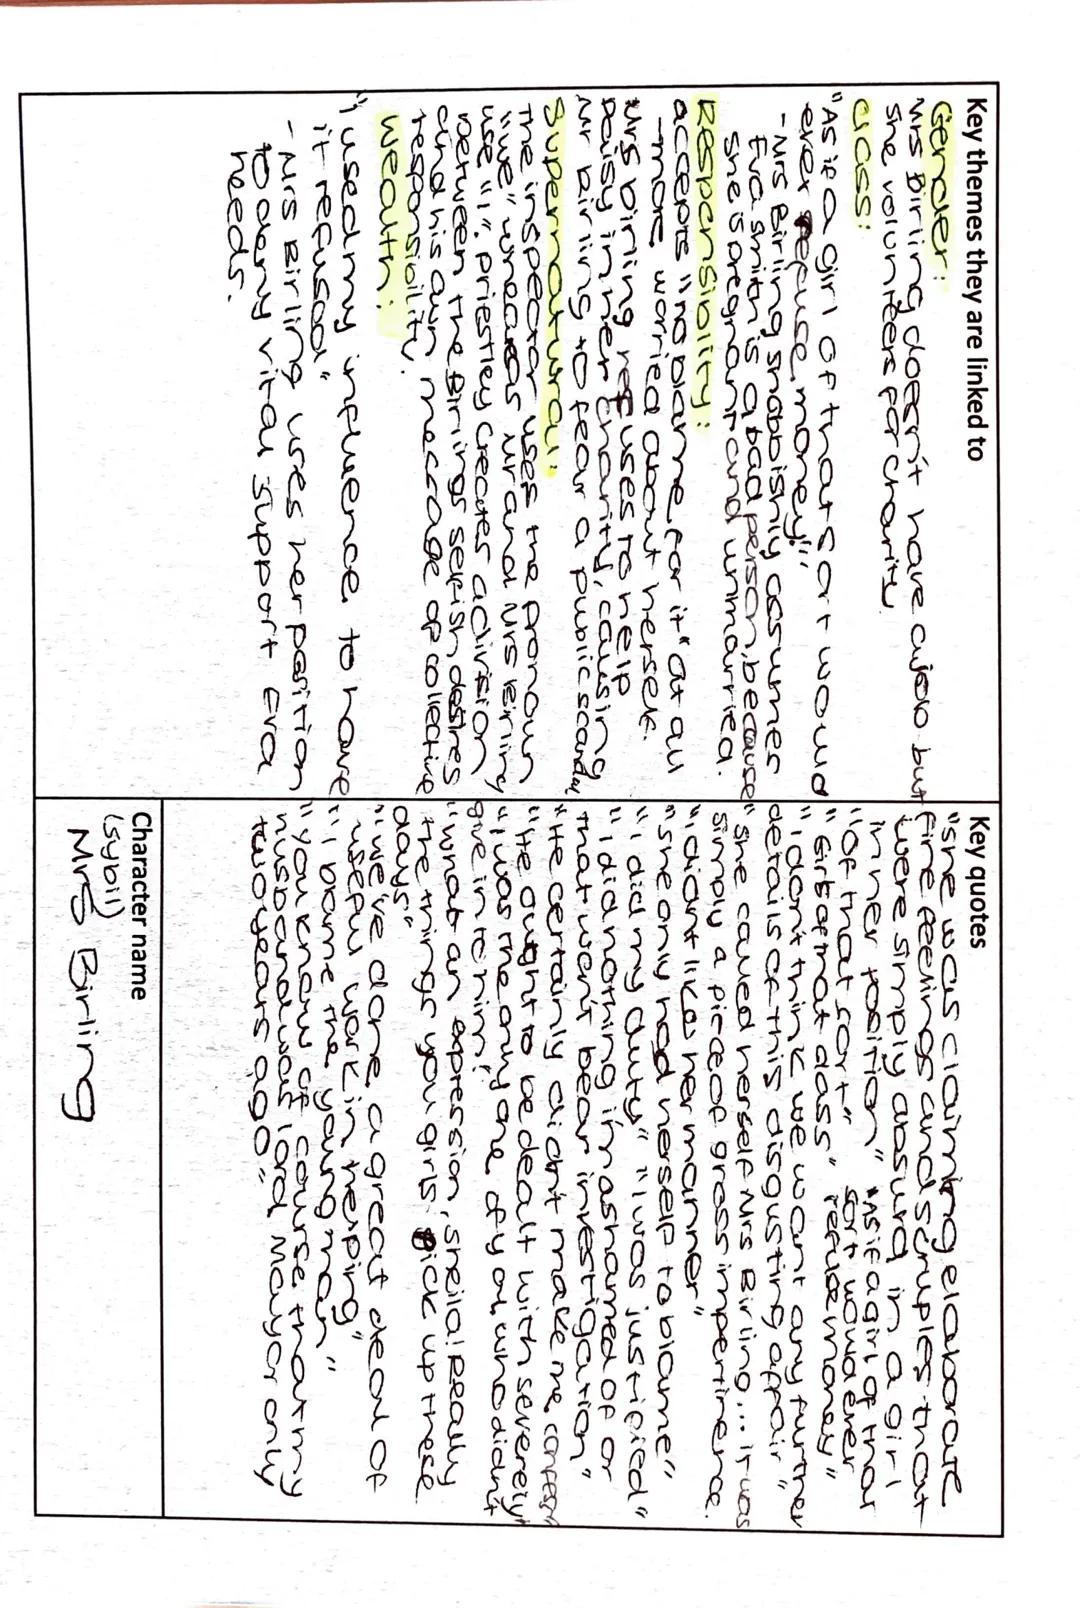 Key themes they are linked to
Gender:
Mrs Birling doesn't have a job but
she volunteers for charity
Class:
"As if a girl of that sort would
ever refuse money!"
- Mrs Birling snobbishly assumes
Eva Smith is a bad person, because
she is pregnant and unmarried.
Responsibility:
accepts "no blame for it" at all
- more worried about herself.
Mrs birling refuses to help
Daisy in her charity, causing
Mr birling to fear a public scandal
Supernatural:
The inspector uses the pronoun
"we" whereas Mr and Mrs Birling
use "I". priestley creates a division
between the Birlings selfish desires
and his own message of collective
responsibility.
Wealth:
"I used my influence to have
it refused"
- Mrs Birling uses her position
to deny vital support Eva
needs.
Key quotes
"she was claiming elaborate
fine feelings and scruples that
were simply absurd in a girl
in her position" "As if a girl of that
"Of that sort" sort would ever
"Girls of that class" refuse money"
"I don't think we want any further
details of this disgusting affair"
"She called herself Mrs Birling... it was
simply a piece of gross impertinence.
"I didnt like her manner"
"she only had herself to blame"
"I did my duty" "I was justified"
"I did nothing i'm ashamed of or
that won't bear investigation"
"He certainly didn't make me confess"
"He ought to be dealt with severely"
"I was the only one of you who didn't
give in to him".
"what an expression, sheila! Really
the things you girls pick up these
days"
"we've done a great deal of
useful work in helping"
"I blame the young man"
"you know of course that my
husband was lord Mayor only
two years ago"
Character name
(sybil)
Mrs Birling